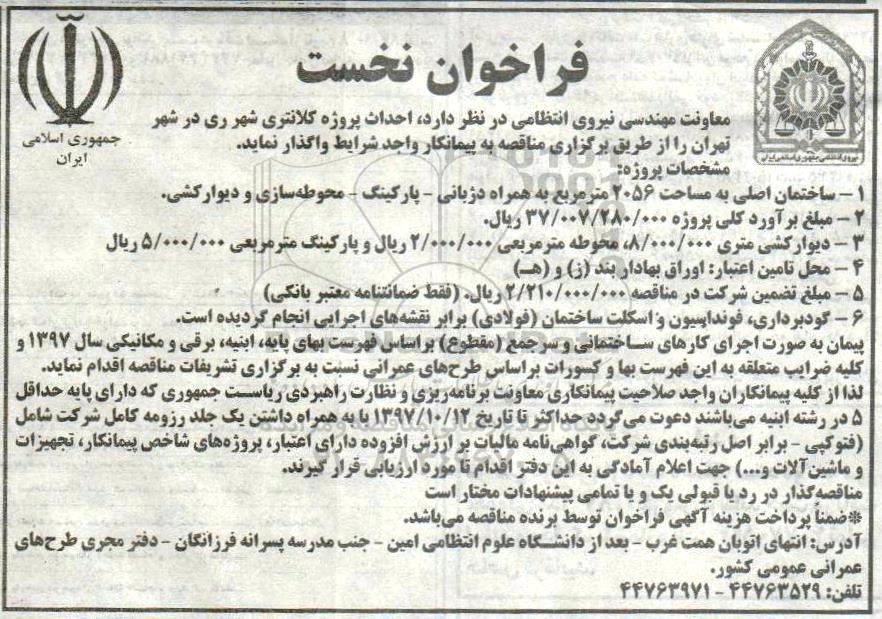 فراخوان نخست
جمهوری اسلامی
ایران
نیروی انتظامی جمهوری اسلامی ایران
معاونت مهندسی نیروی انتظامی در نظر دارد، احداث پروژه کلانتری شهر ری در شهر
تهران را از طریق برگزاری مناقصه به پیمانکار واجد شرایط واگذار نماید.
مشخصات پروژه:
۱ – ساختمان اصلی به مساحت ۲۰۵۶ مترمربع به همراه دژبانی – پارکینگ – محوطه‌سازی و دیوارکشی.
۲ – مبلغ برآورد کلی پروژه ۳۷/۰۰۷/۲۸۰/۰۰۰ ریال.
۳ – دیوارکشی متری ۸/۰۰۰/۰۰۰، محوطه مترمربعی ۲/۰۰۰/۰۰۰ ریال و پارکینگ مترمربعی ۵/۰۰۰/۰۰۰ ریال
۴ – محل تامین اعتبار: اوراق بهادار بند (ز) و (هـ)
۵ – مبلغ تضمین شرکت در مناقصه ۲/۲۱۰/۰۰۰/۰۰۰ ریال. (فقط ضمانتنامه معتبر بانکی)
۶ – گودبرداری، فونداسیون و اسکلت ساختمان (فولادی) برابر نقشه‌های اجرایی انجام گردیده است.
پیمان به صورت اجرای کارهای ساختمانی و سرجمع (مقطوع) براساس فهرست بهای پایه، ابنیه، برقی و مکانیکی سال ۱۳۹۷ و
کلیه ضرایب متعلقه به این فهرست بها و کسورات براساس طرح‌های عمرانی نسبت به برگزاری تشریفات مناقصه اقدام نماید.
لذا از کلیه پیمانکاران واجد صلاحیت پیمانکاری معاونت برنامه‌ریزی و نظارت راهبردی ریاست جمهوری که دارای پایه حداقل
۵ در رشته ابنیه می‌باشند دعوت می‌گردد حداکثر تا تاریخ ۱۳۹۷/۱۰/۱۲ با به همراه داشتن یک جلد رزومه کامل شرکت شامل
(فتوکپی – برابر اصل رتبه‌بندی شرکت، گواهی‌نامه مالیات بر ارزش افزوده دارای اعتبار، پروژه‌های شاخص پیمانکار، تجهیزات
و ماشین‌آلات و...) جهت اعلام آمادگی به این دفتر اقدام تا مورد ارزیابی قرار گیرند.
مناقصه‌گذار در رد یا قبولی یک و یا تمامی پیشنهادات مختار است
*ضمناً پرداخت هزینه آگهی فراخوان توسط برنده مناقصه می‌باشد.
آدرس: انتهای اتوبان همت غرب – بعد از دانشگاه علوم انتظامی امین – جنب مدرسه پسرانه فرزانگان – دفتر مجری طرح‌های
عمرانی عمومی کشور.
تلفن: ۴۴۷۶۳۵۲۹ – ۴۴۷۶۳۹۷۱